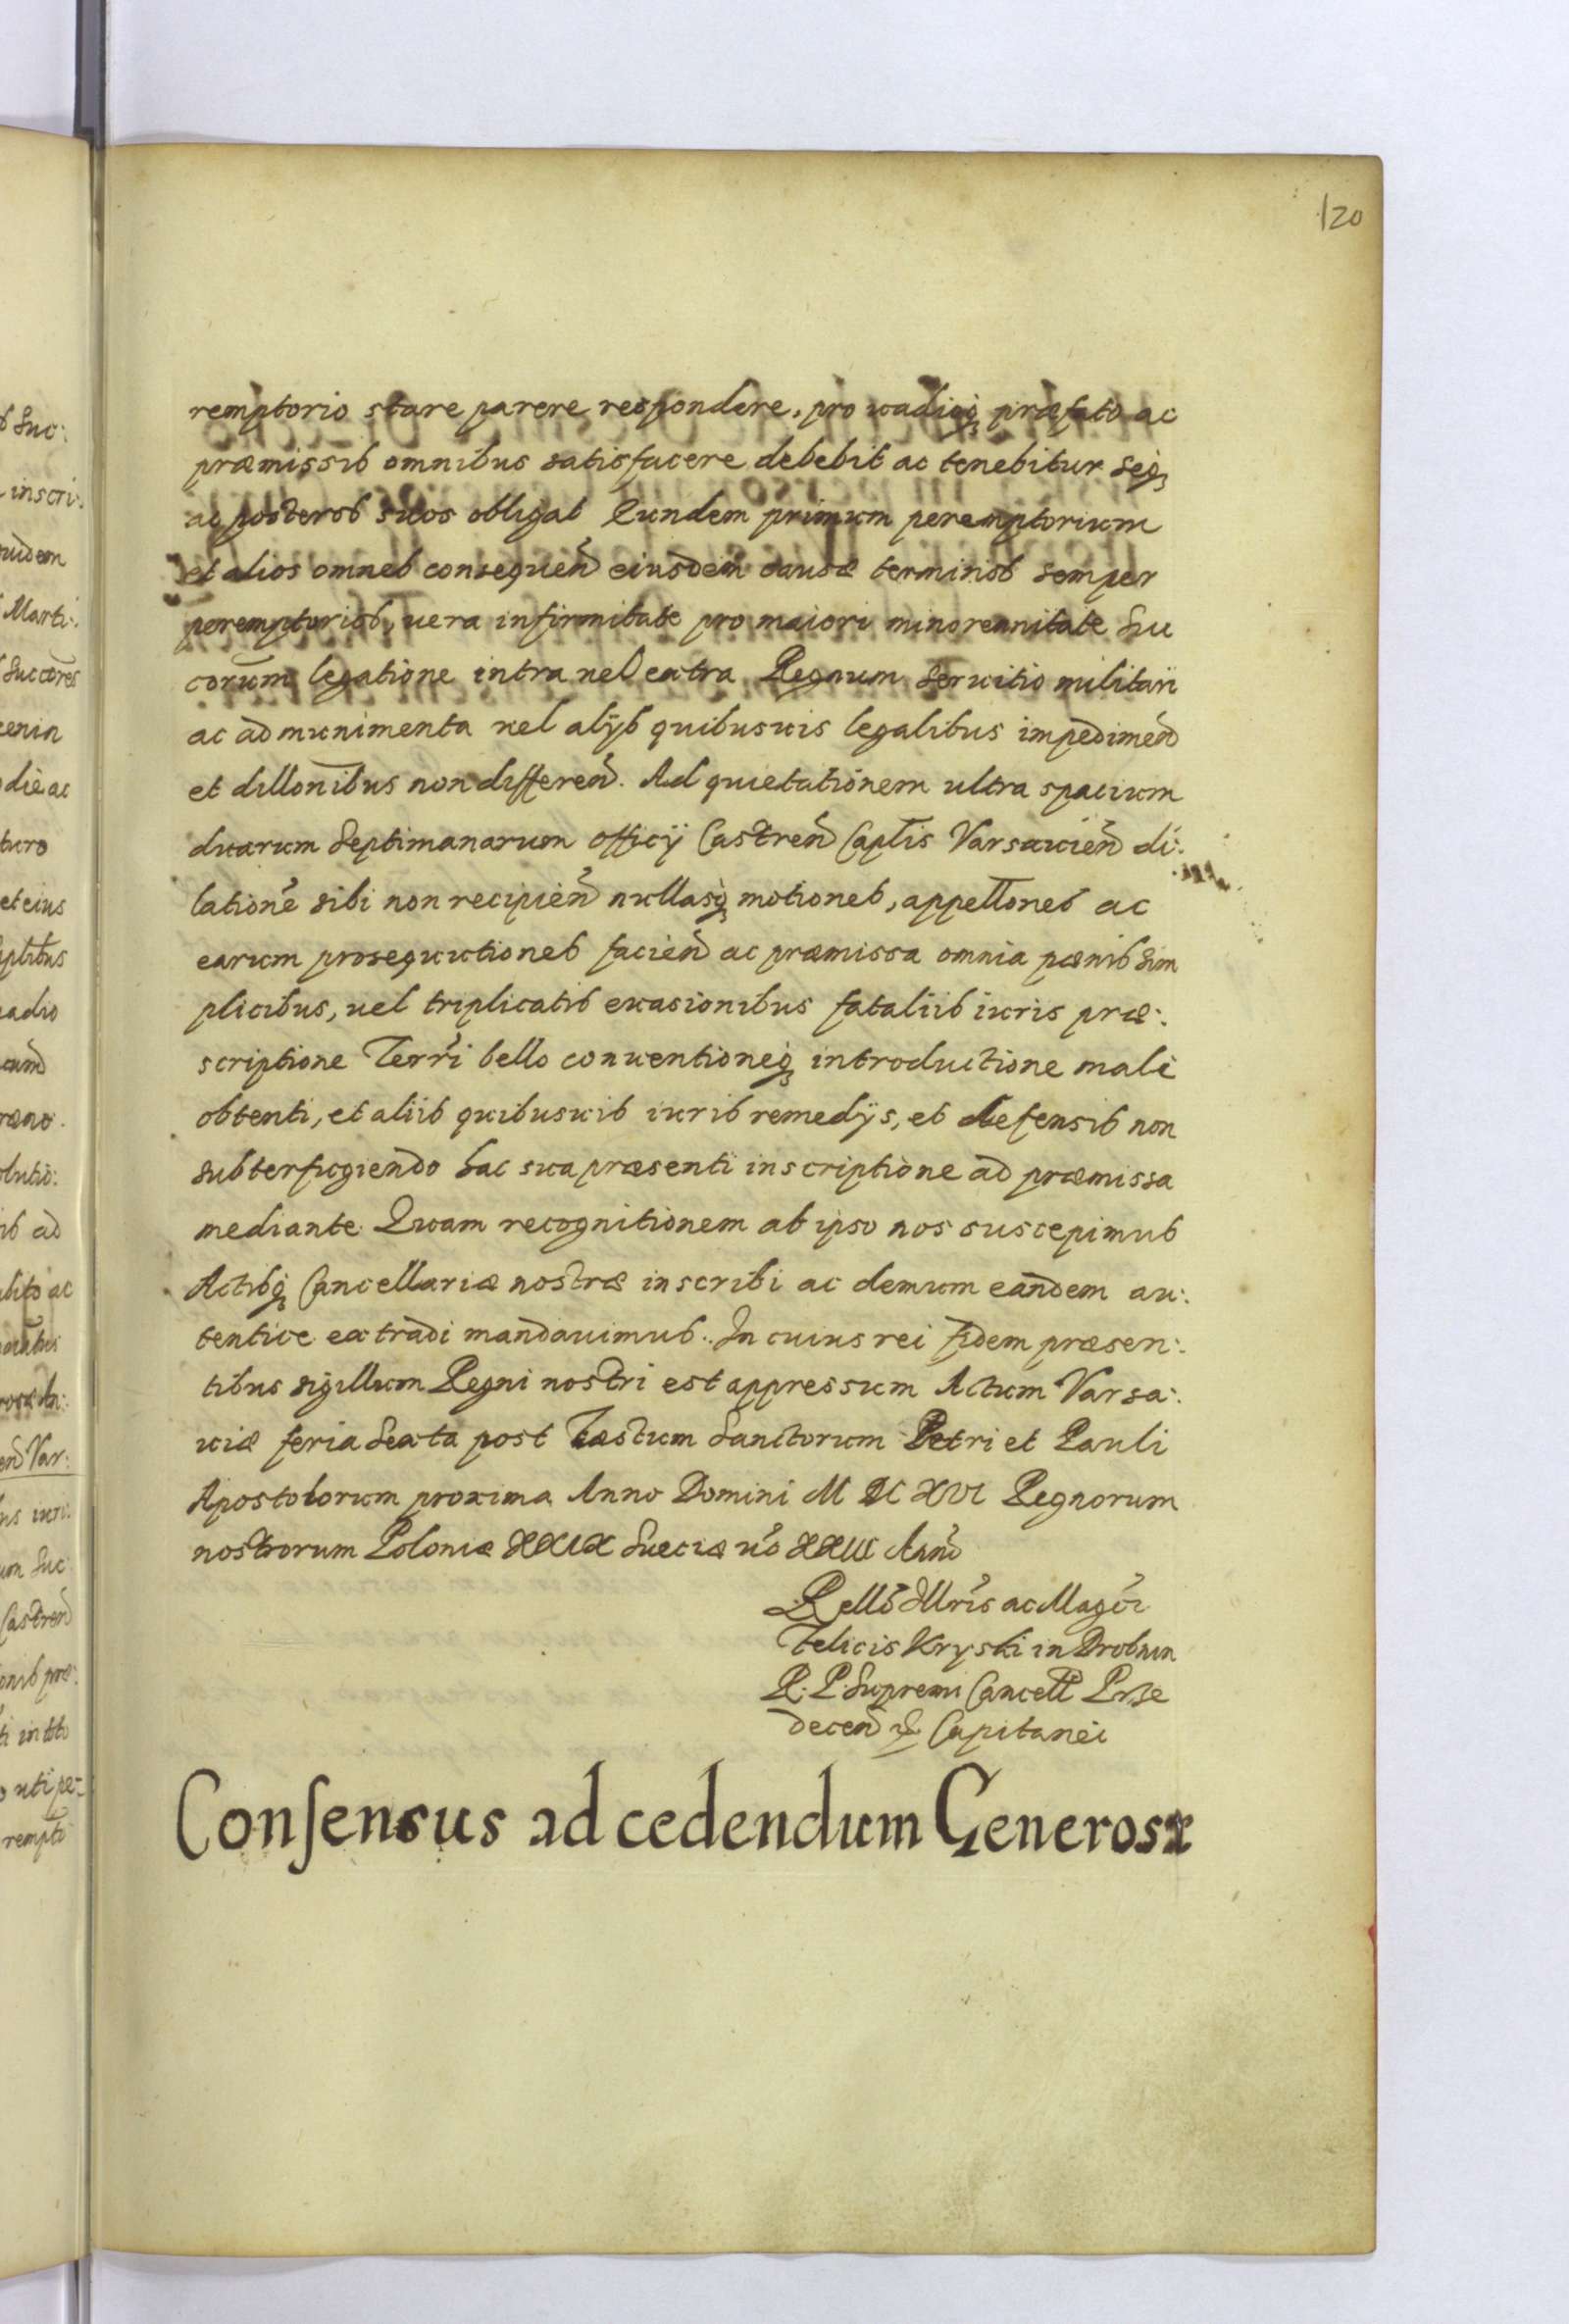 120
remptorio stare parere respondere, pro vadioq; præfato ac
præmissis omnibus satisfacere debebit ac tenebitur seq;
ac posteros suos obligat Eundem primum peremptorium
et alios omnes consequeñ eiusdem causæ terminos semper
peremptorios, uera infirmitate pro maiori minoreunitate Su
corum legatione intra uel extra Regnum seruitio militari
ac ad munimenta uel alijs quibusuis legalibus impedimeñ
et dillonibus non differeñ. Ad quietationem ultra spacium
duarum Septimanarum officij Castreñ Captlis Varsauieñ di:
latione sibi non recipieñ nullasq; motiones, appellones ac
earum prosequutiones facieñ ac præmissa omnia pænis sim
plicibus, uel triplicatis euasionibus fataliis iuris præ:
scriptione Terri bello conuentioneq; introductione mali
obtenti, et aliis quibusuis iuris remedijs, et defensis non
subterfugiendo hac sua præsenti inscriptione ad præmissa
mediante Quam recognitionem ab ipso nos suscepimus
Actisq; Cancellariæ nostræ inscribi ac demum eandem au:
tentice extradi mandauimus. In cuius rei fidem præsen:
tibus sigillum Regni nostri est appressum Actum Varsa:
uiæ feria Sexta post Fæstum Sanctorum Petri et Pauli
Apostolorum proxima Anno Domini M DC XVI Regnorum
nostrorum Poloniæ XXIX Sueciæ uo XXIII Anno
Rello Illris ac Magci
Felicis Kryski in Drobnin
R. P. Supremi Cancell
deceñ Capitanei
Consensus ad cedendum Generosæ
Suc:
inscri:
uidem
Marti:
Succores
die ac
turo
et eius
adio
ad
lito ac
Var:
Suc
Castreñ
uti pe-